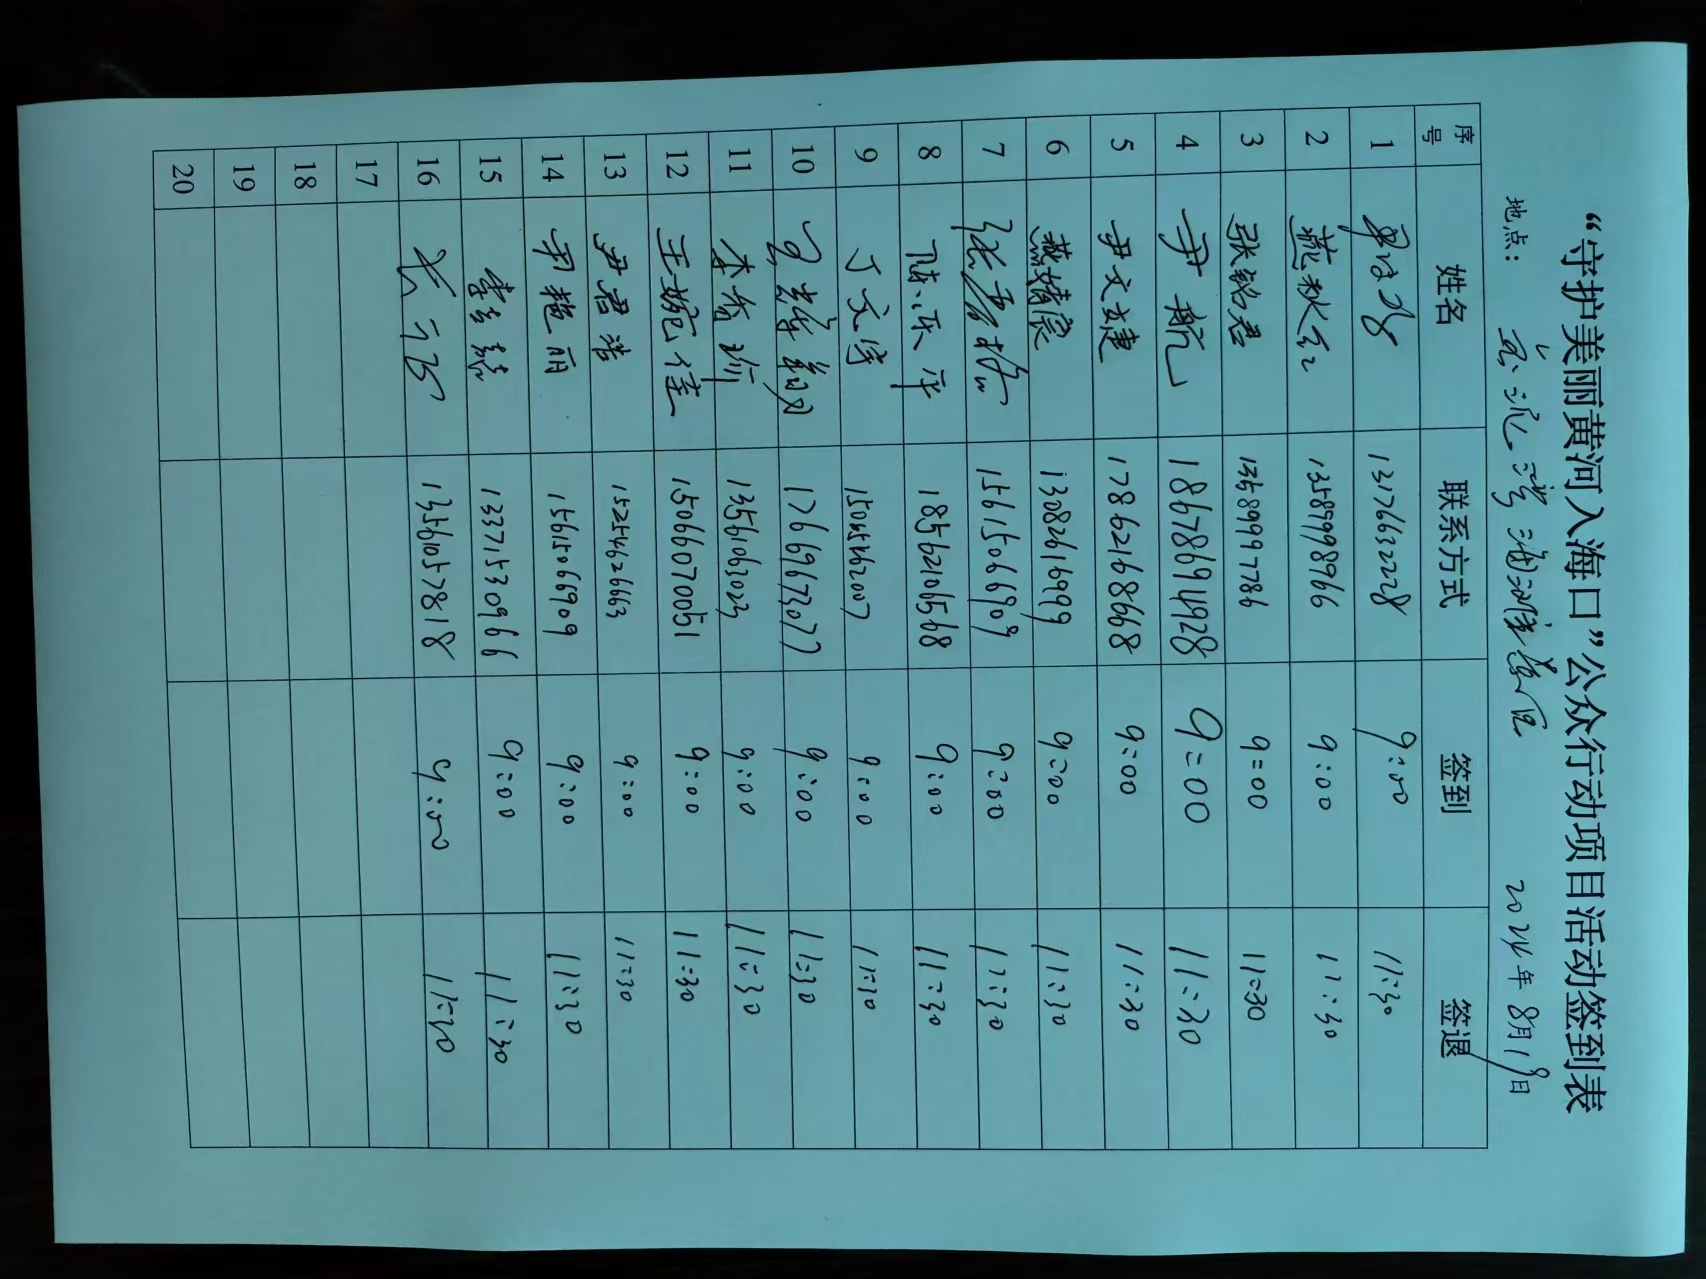 “守护美丽黄河入海口”公众行动项目活动签到表
地点： 2024年8月19日
序号 姓名 联系方式 签到 签退
1 13176632228 9:00 11:30
2 燕秋红 13589998966 9:00 11:30
3 张铭君 13589997786 9:00 11:30
4 尹航 18678694928 9:00 11:30
5 尹文建 17862168668 9:00 11:30
6 燕婧宸 13082616999 9:00 11:30
7 15615066909 9:00 11:30
8 陈乐平 18562106568 9:00 11:30
9 丁文宇 15045462007 9:00 11:30
10 17669673077 9:00 11:30
11 13561063023 9:00 11:30
12 王婉佳 15066070051 9:00 11:30
13 尹君浩 15254626663 9:00 11:30
14 尹艳丽 15615066909 9:00 11:30
15 13371530966 9:00 11:30
16 13561057818 9:00 11:30
17
18
19
20